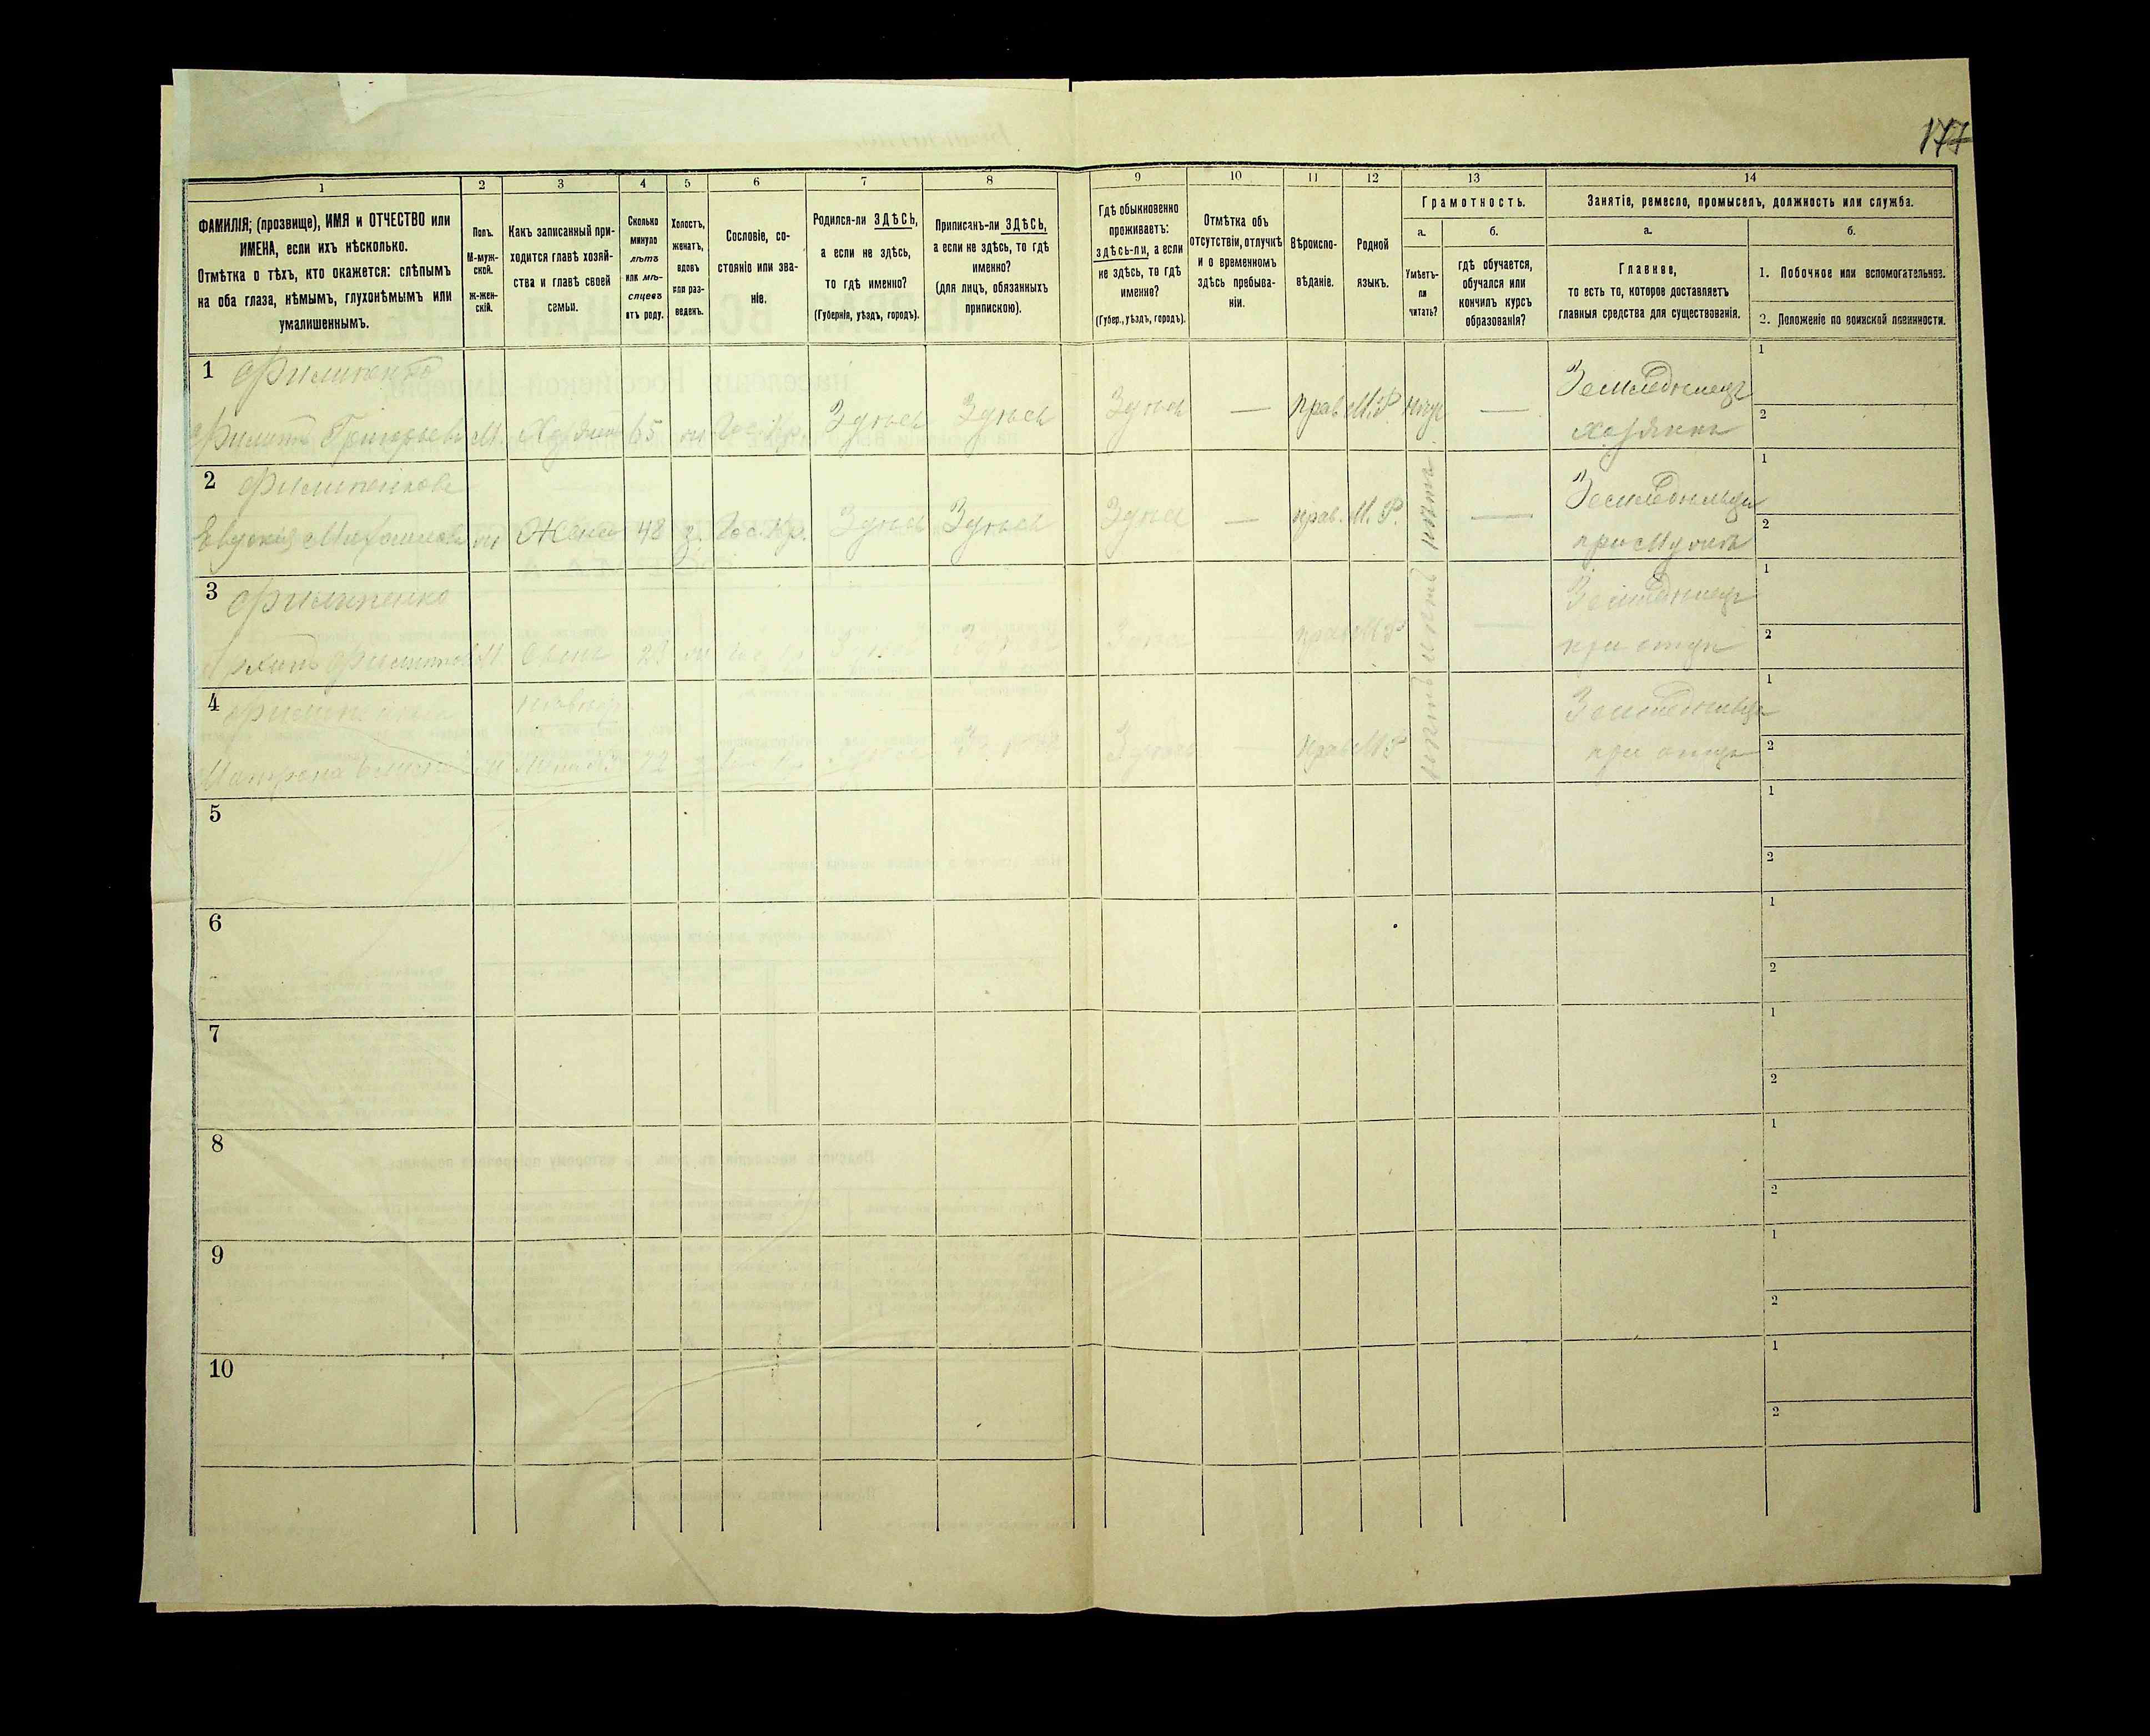 177
1 2 3 4 5 6 7 8 9 10 11 12 13 14
ФАМИЛІЯ; (прозвище), ИМЯ и ОТЧЕСТВО или
ИМЕНА, если ихъ нѣсколько.
Отмѣтка о тѣхъ, кто окажется: слѣпымъ
на оба глаза, нѣмымъ, глухонѣмымъ или
умалишеннымъ.
Полъ.
М-муж-
ской.
Ж-жен-
скій.
Какъ записанный при-
ходится главѣ хозяй-
ства и главѣ своей
семьи.
Сколько
минуло
лѣтъ
или мѣ-
сяцевъ
отъ роду.
Холостъ,
женатъ,
вдовъ
или раз-
веденъ.
Сословіе, со-
стояніе или зва-
ніе.
Родился-ли ЗДѢСЬ,
а если не здѣсь,
то гдѣ именно?
(Губернія, уѣздъ, городъ).
Приписанъ-ли ЗДѢСЬ,
а если не здѣсь, то гдѣ
именно?
(для лицъ, обязанныхъ
припискою).
Гдѣ обыкновенно
проживаетъ:
здѣсь-ли, а если
не здѣсь, то гдѣ
именно?
(Губер., уѣздъ, городъ).
Отмѣтка объ
отсутствіи, отлучкѣ
и о временномъ
здѣсь пребыва-
ніи.
Вѣроиспо-
вѣданіе.
Родной
языкъ.
Грамотность.
а.
Умѣетъ-
ли
читать?
б.
гдѣ обучается,
обучался или
кончилъ курсъ
образованія?
Занятіе, ремесло, промыселъ, должность или служба.
а.
Главное,
то есть то, которое доставляетъ
главныя средства для существованія.
б.
1. Побочное или вспомогательное.
2. Положеніе по воинской повинности.
1 Филипенко
Филипъ Григорьевъ М. Хозяинъ 65 ж Гос. Кр. Здѣсь Здѣсь Здѣсь — Прав. М.Р. нѣтъ — Земледѣлецъ
хозяинъ
1
2
2 Филипенкова
Евдокия Михайлова ж Жена 48 з. Гос. Кр. Здѣсь Здѣсь Здѣсь — прав. М. Р. нѣтъ — Земледѣлица
при мужѣ
1
2
3 Филипенко
М Сынъ Здѣсь Здѣсь Здѣсь — прав М Р нѣтъ — Земледѣлецъ
при отцѣ
1
2
4
Матрона 22 Здѣсь Здѣсь Здѣсь — Прав М Р нѣтъ Земледѣлица
при отцѣ
1
2
5
1
2
6
1
2
7
1
2
8
1
2
9
1
2
10
1
2